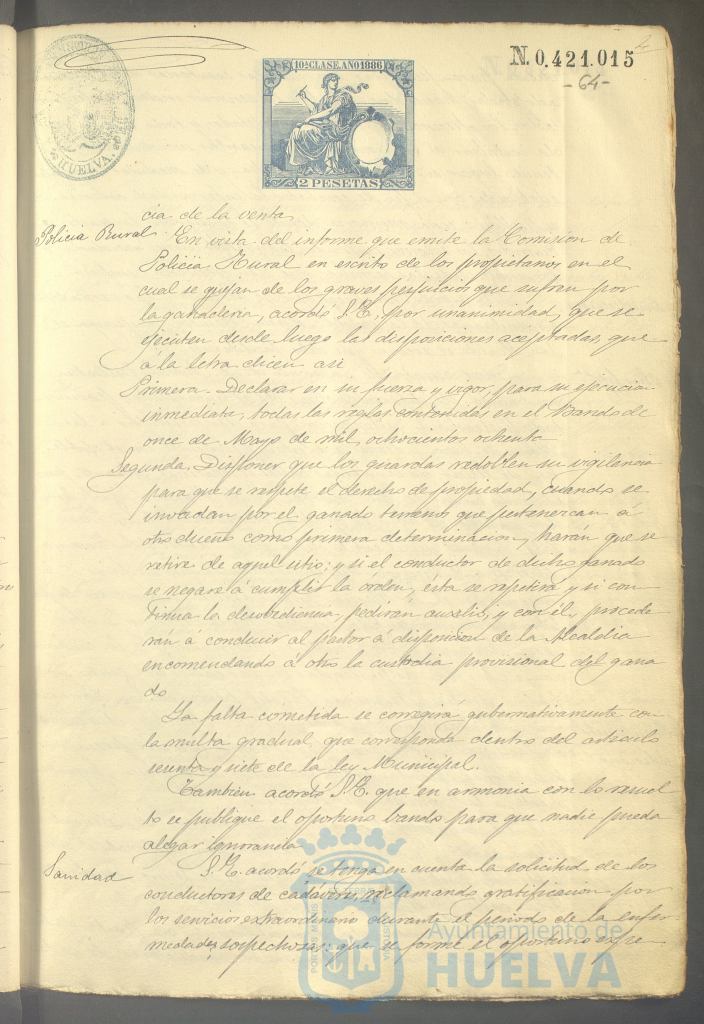 10ª CLASE. AÑO 1886
2 PESETAS
N. 0.421.015
-64-
HUELVA.
cia de la venta
Policia Rural
En vista del informe que emite la Comision de
Policia Rural en escrito de los propietarios en el
cual se quejan de los graves perjuicios que sufren por
la ganaderia, acordó S. E. por unanimidad, que se
ejecuten desde luego las disposiciones aceptadas, que
á la letra dicen asi
Primera. Declarar en su fuerza y vigor, para su ejecucion
inmediata, todas las reglas contenidas en el Bando de
once de Mayo de mil ochocientos ochenta
Segunda. Disponer que los guardas redoblen su vigilancia
para que se respete el derecho de propiedad, cuando se
invadan por el ganado terrenos que pertenezcan á
otro dueño como primera determinacion, harán que se
retire de aquel sitio; y si el conductor de dicho ganado
se negare á cumplir la orden, ésta se repetirá y si con
tinua la desobediencia, pedirán auxilio, y con él, procede
rán á conducir al pastor á disposicion de la Alcaldia
encomendando á otro la custodia provisional del gana
do
La falta cometida se corregirá gubernativamente con
la multa gradual, que corresponda dentro del articulo
setenta y siete de la ley Municipal.
Tambien acordó S. E. que en armonia con lo resuel
to se publique el oportuno bando para que nadie pueda
alegar ignorancia
Sanidad
S. E. acordó se tenga en cuenta la solicitud de los
conductores de cadáveres, reclamando gratificacion por
los servicios extraordinario durante el periodo de la enfer-
medades sospechosa; que se forme el oportuno expe-
Ayuntamiento de
HUELVA